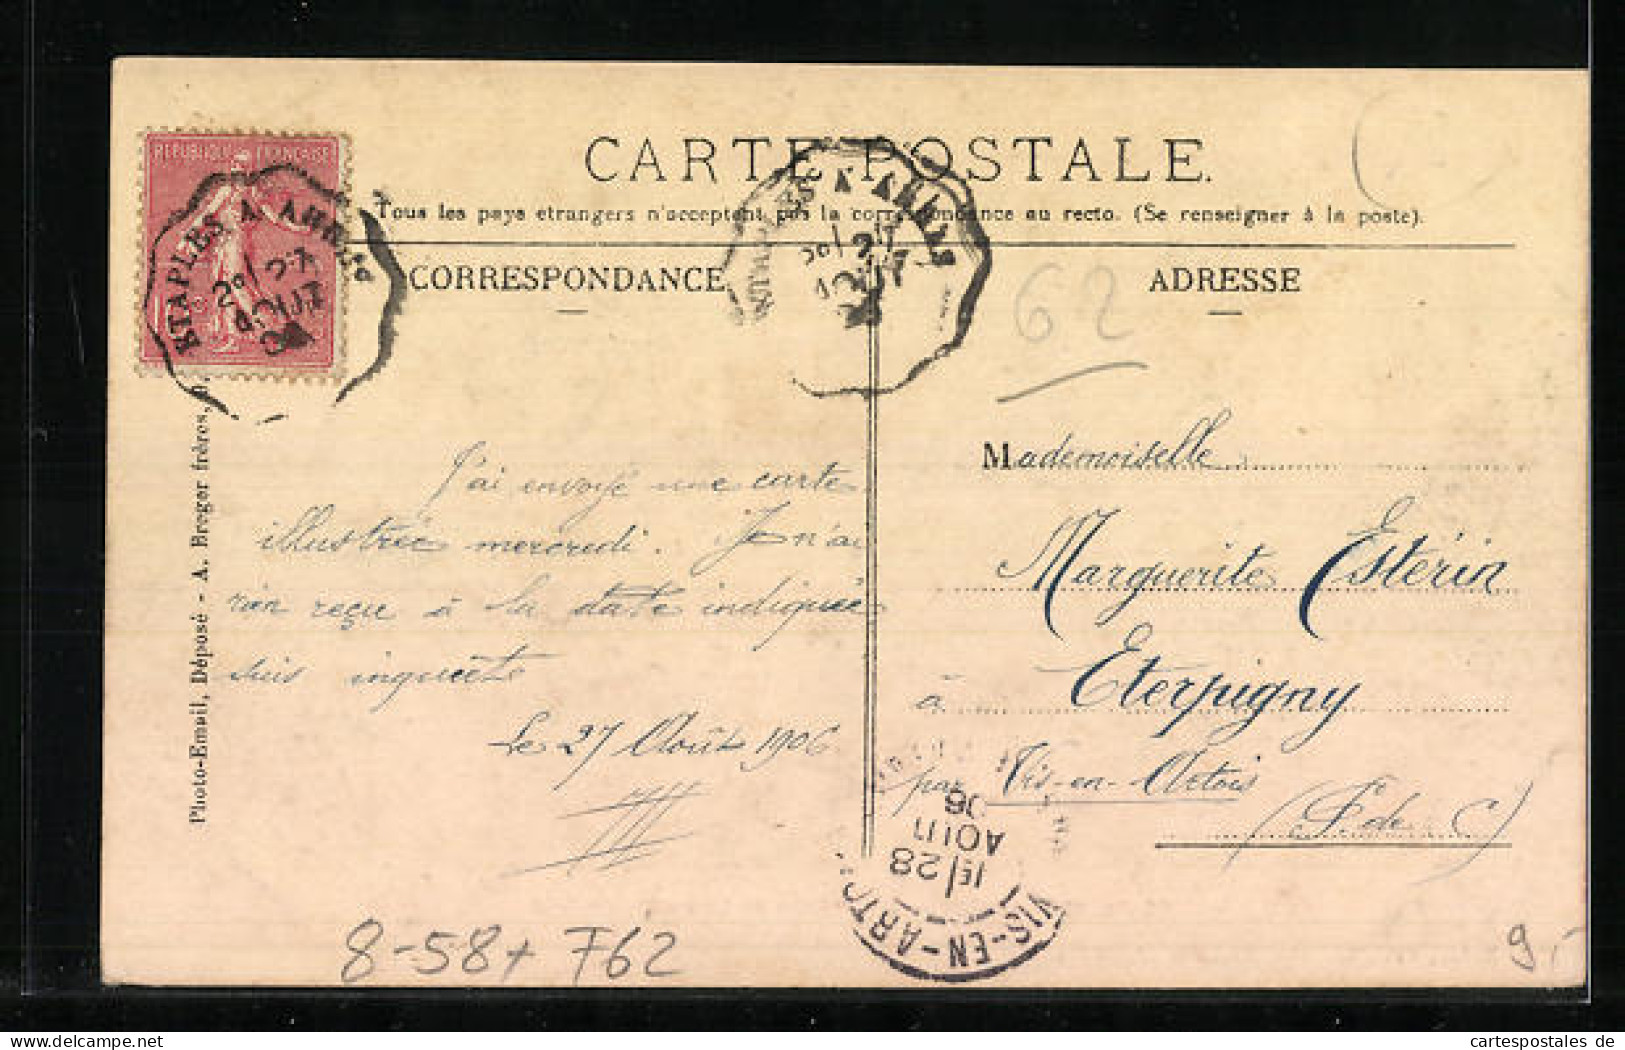 CARTE POSTALE.
Tous les pays étrangers n'acceptent pas la correspondance au recto. (Se renseigner à la poste).
REPUBLIQUE FRANÇAISE
ETAPLES A ARRAS
AOUT
ETAPLES A ARRAS
AOUT
CORRESPONDANCE
J'ai envoyé une carte
illustrée mercredi. Je n'ai
rien reçu à la date indiquée
suis inquiète
Le 27 Août 1906
Photo-Email, Déposé - A. Breger frères,
ADRESSE
62
Mademoiselle
Marguerite Estérin
à Eterpigny
par Vis-en-Artois
(P. de C)
VIS-EN-ARTOIS
28
AOUT
06
8-58+ 762
9,-
cartespostales de